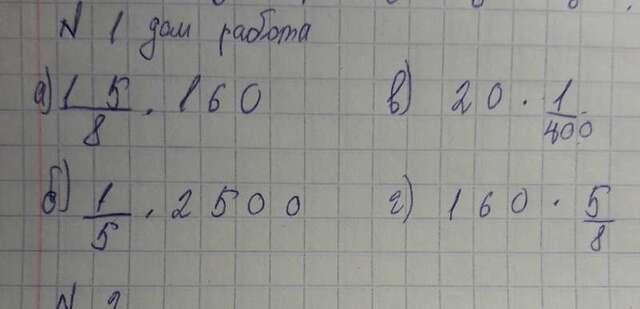 N 1 дом работа
а) 15/8 · 160
в) 20 · 1/400
б) 1/5 · 2500
г) 160 · 5/8